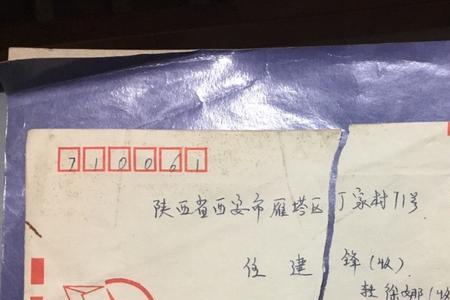 710061
陕西省西安市雁塔区丁家村71号
任建锋(收)
徐娜(收